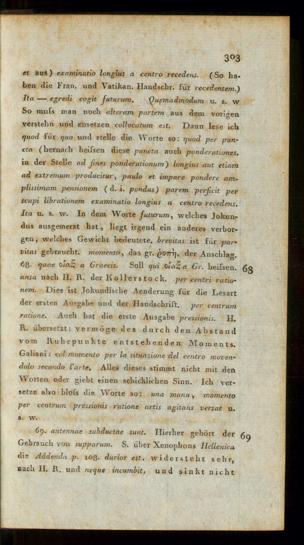 303
et aus) examinatio longius a centro recedens. (So ha-
ben die Fran. und Vatikan. Handschr. für recedentem.)
Ita — egredi cogit futurum. Quemadmodum u. s. w
So muss man noch alteram partem aus dem vorigen
verstehn und einsetzen collocatum est. Dann lese ich
quod für quo und stelle die Worte so: quod per pun-
cta (hernach heissen diese puncta noch ponderationes,
in der Stelle ad fines ponderationum) longius aut etiam
ad extremum producitur, paulo et impare pondere am-
plissimam pensionem (d. i. pondus) parem perficit per
scapi librationem examinatio longius a centro recedens.
Ita u. s. w. In dem Worte futurum, welches Jokun-
dus ausgemerzt hat, liegt irgend ein anderes verbor-
gen, welches Gewicht bedeutete. brevitas ist für par-
vitas gebraucht. momento, das gr. ῥοπή, der Anschlag.
68. quae οἴαξ a Graecis. Soll qui οἴαξ a Gr. heissen. 68
ansa nach H. R. der Kollerstock. per centri ratio-
nem. Dies ist Jokundische Aenderung für die Lesart
der ersten Ausgabe und der Handschrift. per centrum
ratione. Auch hat die erste Ausgabe pressionis. H.
R. übersetzt: vermöge des durch den Abstand
vom Ruhepunkte entstehenden Moments.
Galiani: col momento per la situazione del centro moven-
dolo secondo l'arte. Alles dieses stimmt nicht mit den
Worten oder giebt einen schicklichen Sinn. Ich ver-
setze also bloss die Worte so: una manu, momento
per centrum pressionis ratione artis agitans versat u.
s. w.
69. antennae subductae sunt. Hierher gehört der 69
Gebrauch von supparum. S. über Xenophons Hellenica
die Addenda p. 108. durior est, widersteht sehr,
nach H. R. und neque incumbit, und sinkt nicht